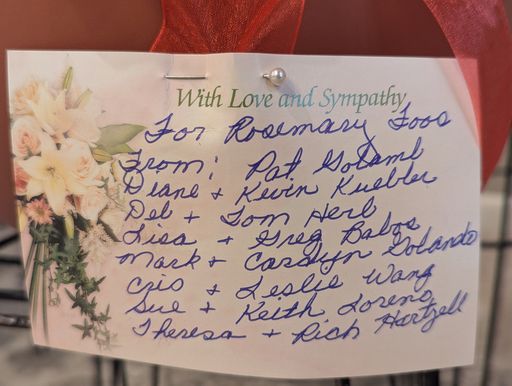 With Love and Sympathy
For Rosemary Foos
From: Pat Golamb
Diane + Kevin Kuebler
Deb + Tom Herb
Lisa + Greg Balos
Mark + Carolyn Golando
Cris + Leslie Wang
Sue + Keith Lorenz
Theresa + Rich Hartzell